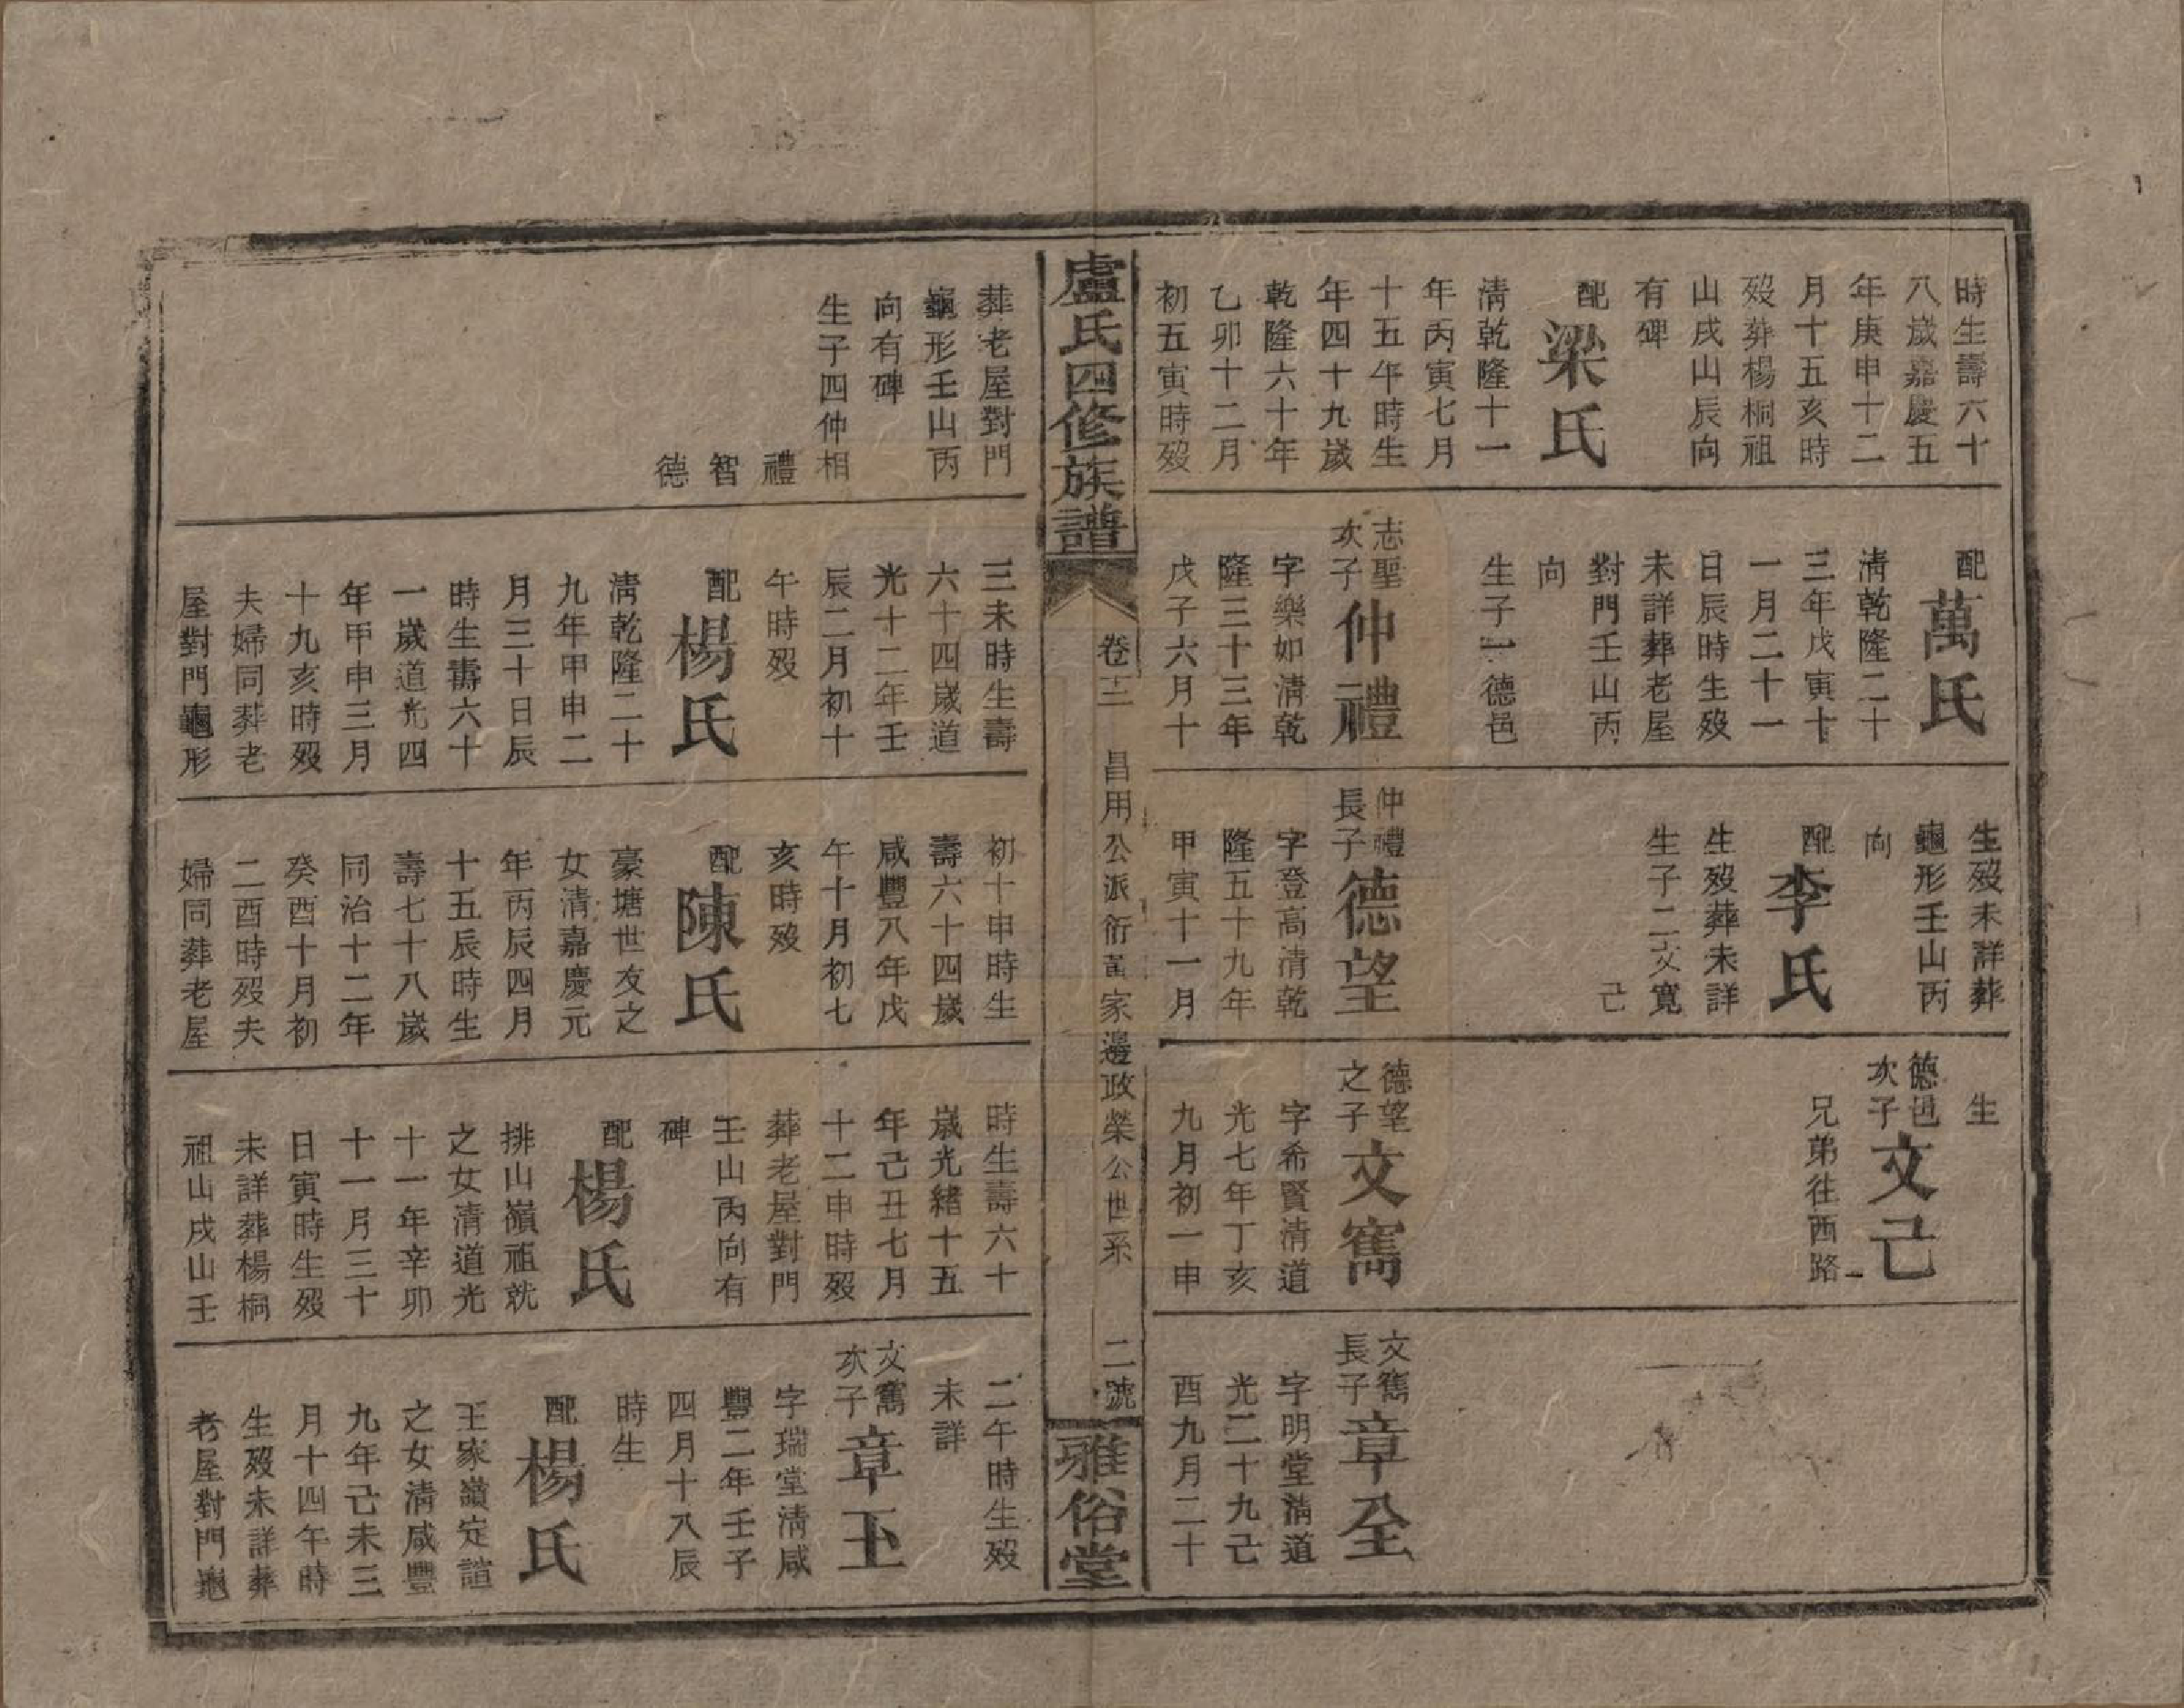 時生壽六十
八歲嘉慶五
年庚申十二
月十五亥時
歿葬楊桐祖
山戌山辰向
有碑
配梁氏
清乾隆十一
年丙寅七月
十五午時生
年四十九歲
乾隆六十年
乙卯十二月
初五寅時歿
配萬氏
清乾隆二十
三年戊寅十
一月二十一
日辰時生歿
未詳葬老屋
對門壬山丙
向
生子一德邑
志聖
次子仲禮
字樂如清乾
隆三十三年
戊子六月十
生歿未詳葬
龜形壬山丙
向
配李氏
生歿葬未詳
生子二文寬
己
仲禮
長子德望
字登高清乾
隆五十九年
甲寅十一月
生
德邑
次子文己
兄弟往西路
德望
之子文寯
字希賢清道
光七年丁亥
九月初一申
文寯
長子章全
字明堂清道
光二十九己
酉九月二十
盧氏四修族譜
卷三
昌用公派衍黃家邊政榮公世系
二號
雅俗堂
葬老屋對門
龜形壬山丙
向有碑
生子四仲相
禮
智
德
三未時生壽
六十四歲道
光十二年壬
辰二月初十
午時歿
配楊氏
清乾隆二十
九年甲申二
月三十日辰
時生壽六十
一歲道光四
年甲申三月
十九亥時歿
夫婦同葬老
屋對門龜形
初十申時生
壽六十四歲
咸豐八年戊
午十月初七
亥時歿
配陳氏
豪塘世友之
女清嘉慶元
年丙辰四月
十五辰時生
壽七十八歲
同治十二年
癸酉十月初
二酉時歿夫
婦同葬老屋
時生壽六十
歲光緒十五
年己丑七月
十二申時歿
葬老屋對門
壬山丙向有
碑
配楊氏
排山嶺祖就
之女清道光
十一年辛卯
十一月三十
日寅時生歿
未詳葬楊桐
祖山戌山壬
二午時生歿
未詳
文寯
次子章玉
字瑞堂清咸
豐二年壬子
四月十八辰
時生
配楊氏
王家嶺定誼
之女清咸豐
九年己未三
月十四午時
生歿未詳葬
老屋對門龜